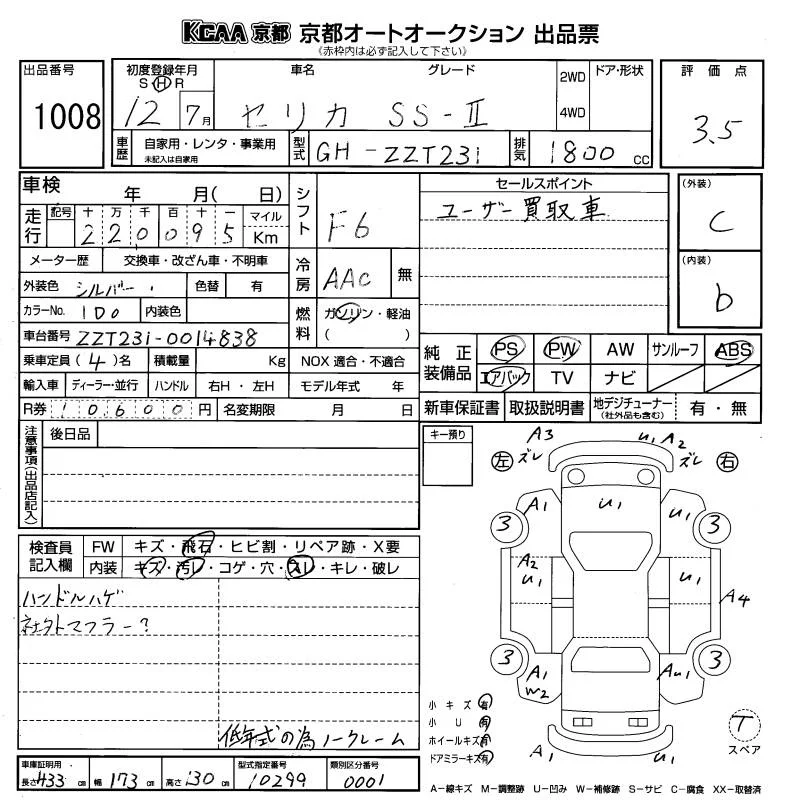 KCAA 京都 京都オートオークション 出品票
《赤枠内は必ず記入して下さい》
出品番号 1008
初度登録年月 SHR 12 7月
車名 セリカ
グレード SS-Ⅱ
2WD 4WD
ドア・形状
評価点 3.5
車歴 自家用・レンタ・事業用 未記入は自家用
型式 GH-ZZT231
排気 1800 CC
車検 年 月( 日)
走行 記号 十 万 千 百 十 一 マイル
220095 Km
シフト F6
セールスポイント
ユーザー買取車
(外装) C
(内装) b
メーター歴 交換車・改ざん車・不明車
冷房 AAC 無
外装色 シルバー 色替 有
カラーNo. 1D0 内装色
燃料 ガソリン・軽油 ( )
車台番号 ZZT231-0014838
乗車定員 (4)名 積載量 Kg NOX 適合・不適合
純正装備品 PS PW AW サンルーフ ABS
エアバック TV ナビ
輸入車 ディーラー・並行 ハンドル 右H・左H モデル年式 年
R券 10600円 名変期限 月 日
新車保証書 取扱説明書 地デジチューナー (社外品も含む) 有・無
注意事項(出品店記入)
後日品
キー預り
A3 ズレ U1 A2 ズレ
左 右
A1 U1 U1
3 3
A2 U1 U1 A4
3 3
A1 W2 AU1
A1 U1
検査員記入欄 FW キズ・飛石・ヒビ割・リペア跡・X要
内装 キズ・汚レ・コゲ・穴・スレ・キレ・破レ
ハンドルハゲ
社外マフラー?
低年式の為ノークレーム
小キズ 有
小U 有
ホイールキズ 有
ドアミラーキズ 有
T スペア
車庫証明用 長さ433cm 幅173cm 高さ130cm
型式指定番号 10299
類別区分番号 0001
A−線キズ M−調整跡 U−凹み W−補修跡 S−サビ C−腐食 XX−取替済